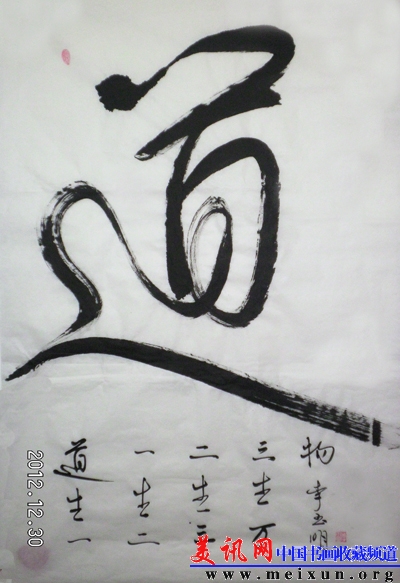 道
道生一
一生二
二生三
三生万
物
2012.12.30
美讯网 中国书画收藏频道
www.meixun.org